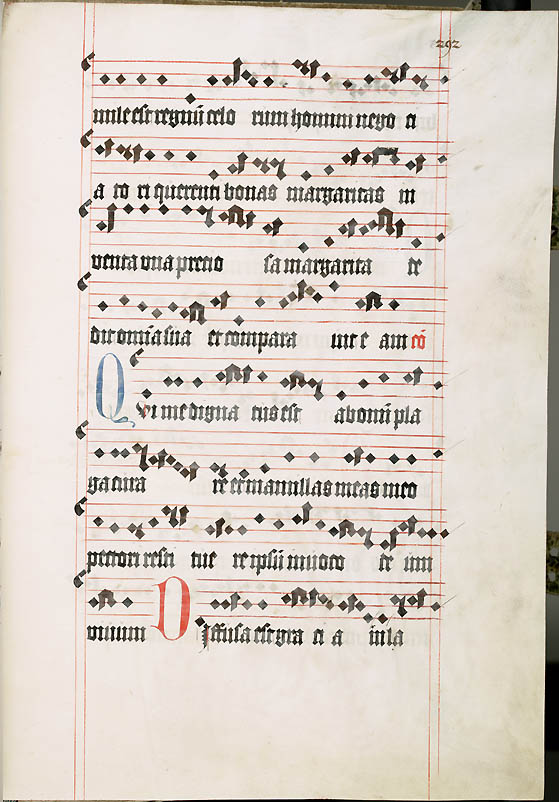 292
mile est regnū celo rum homini nego ci
a to ri querenti bonas margaritas in
venta vna precio sa margarita te
dit omīa sua et compara uit e am cō
Qvi me digna tus est ab omī pla
ga cura re et mamillas meas meo
pectori resti tue re ipsū inuoco de um
viuum Diffusa est gra ci a in la